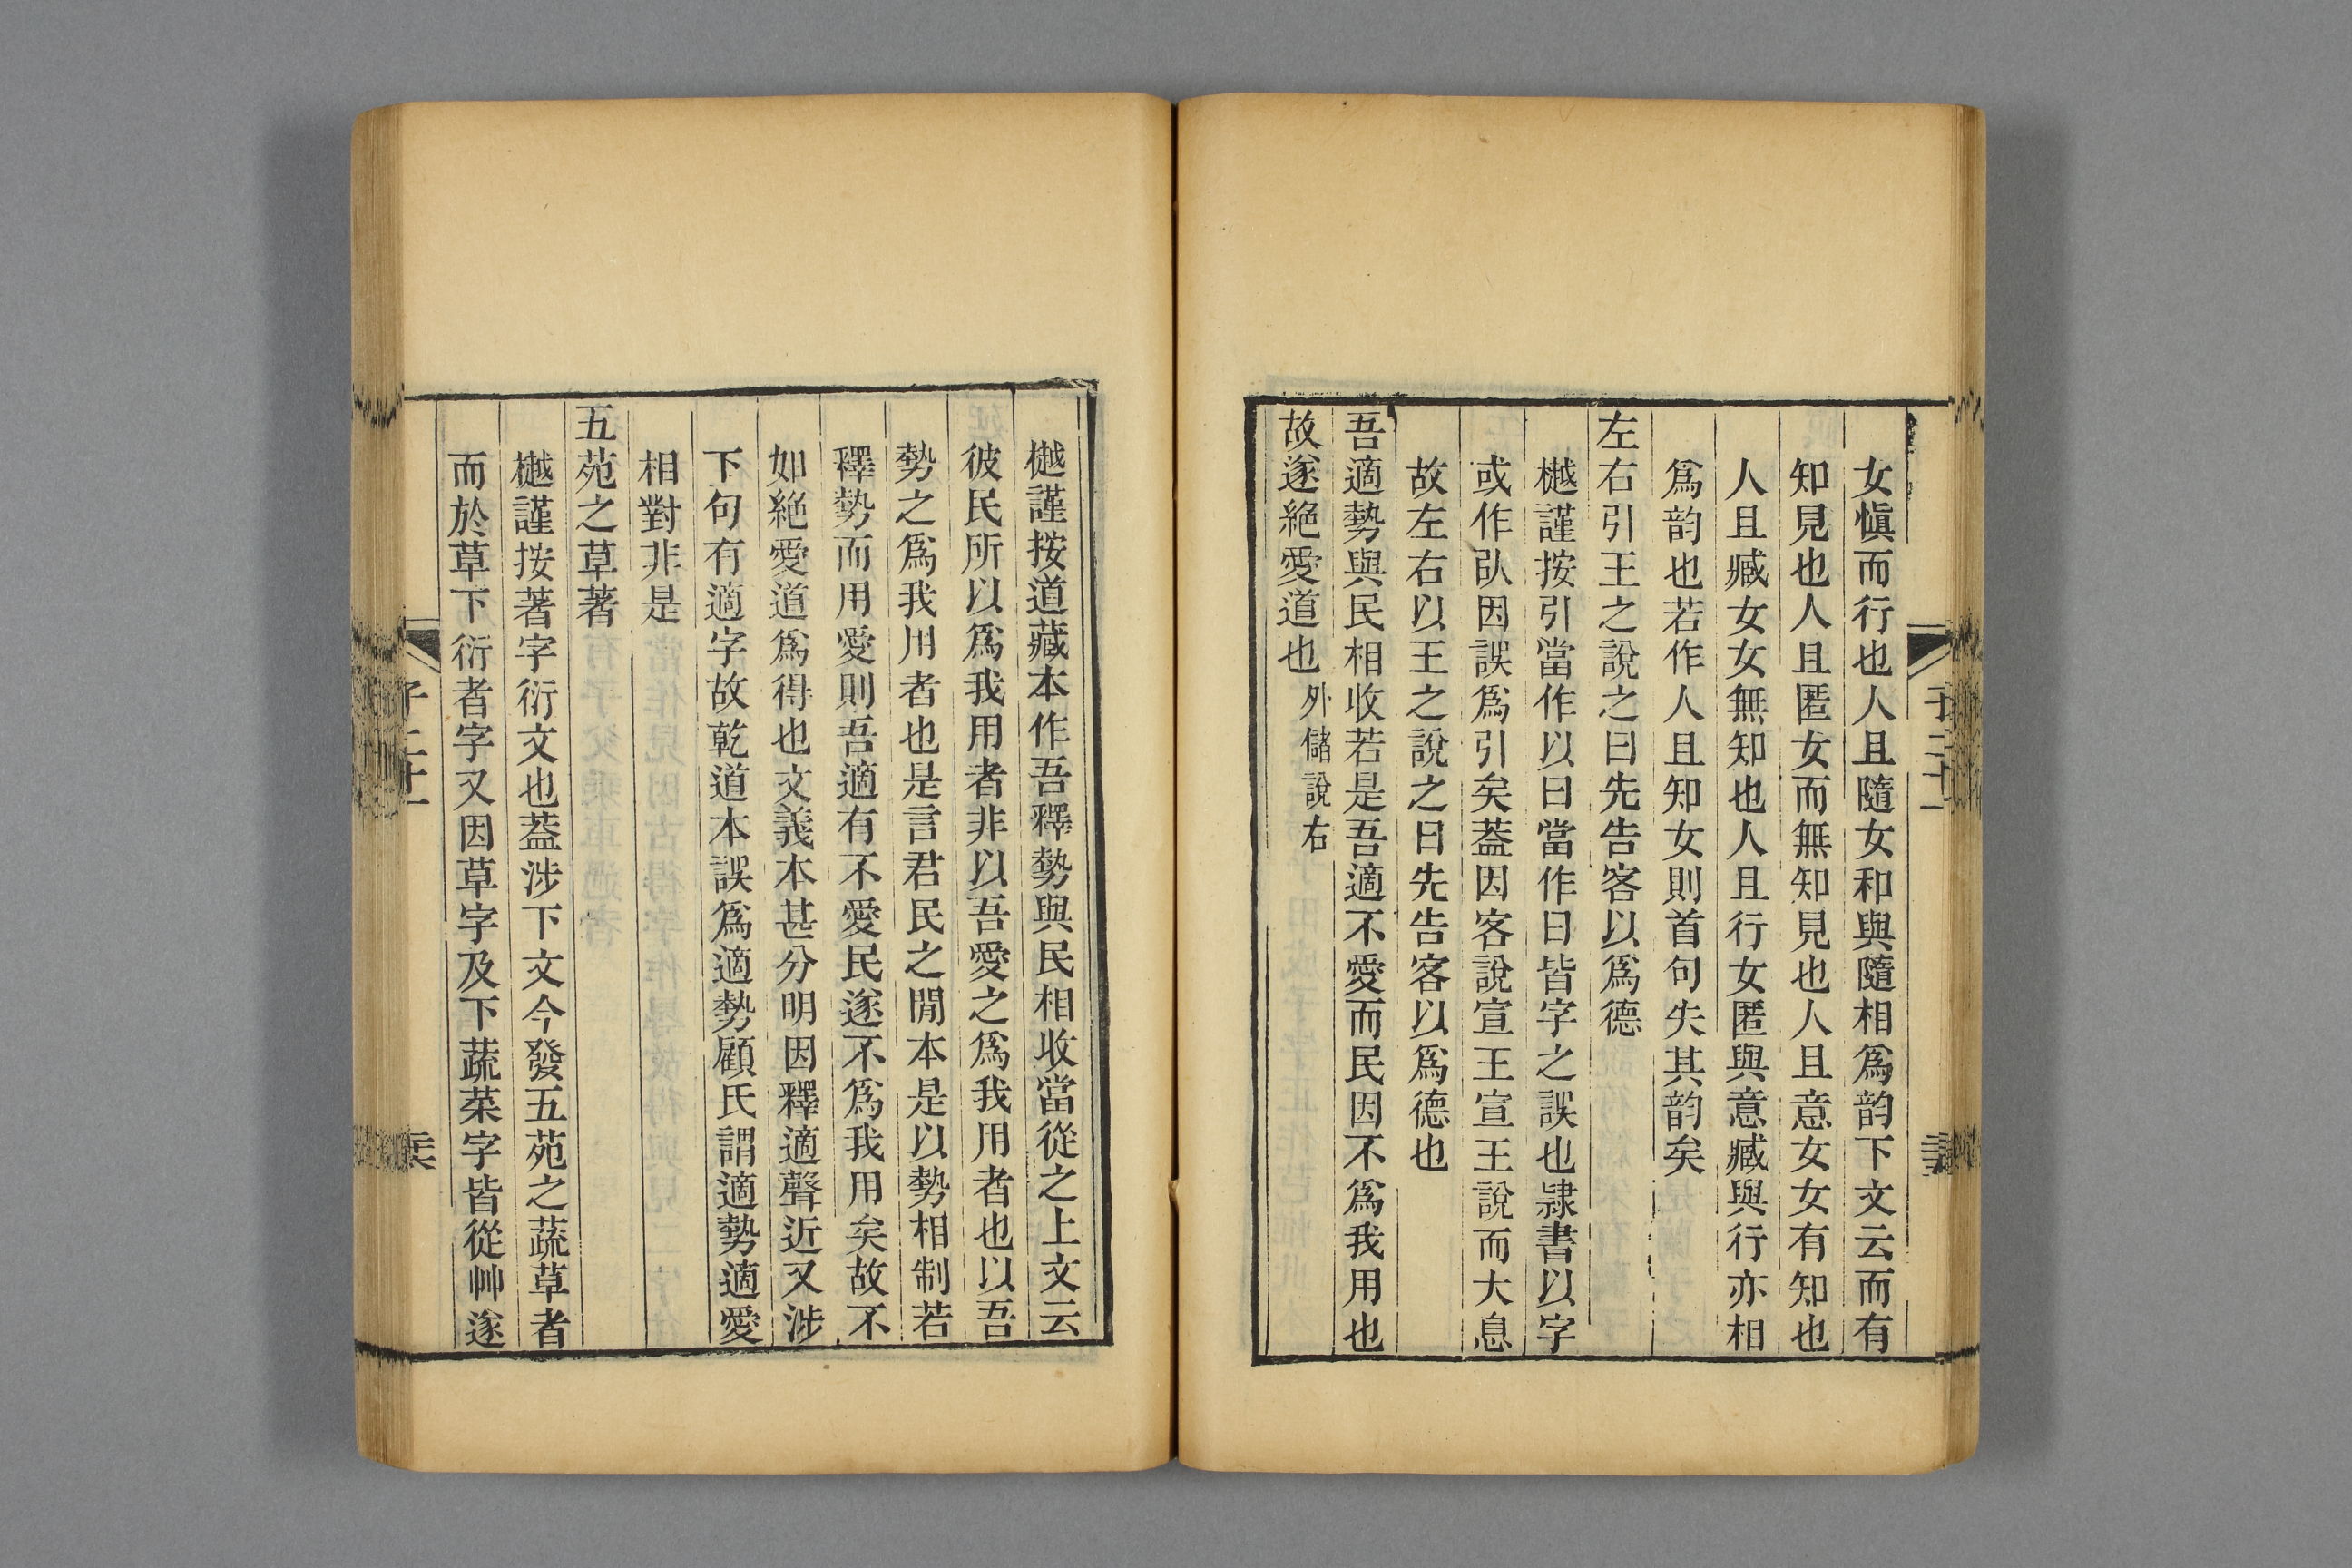 女愼而行也人且隨女和與隨相爲韵下文云而有
知見也人且匿女而無知見也人且意女女有知也
人且臧女女無知也人且行女匿與意臧與行亦相
爲韵也若作人且知女則首句失其韵矣
左右引王之說之曰先告客以爲德
樾謹按引當作以曰當作曰皆字之誤也隷書以字
或作㕥因誤爲引矣葢因客說宣王宣王說而大息
故左右以王之說之曰先告客以爲德也
吾適勢與民相收若是吾適不愛而民因不爲我用也
故遂絕愛道也外儲說右
樾謹按道藏本作吾釋勢與民相收當從之上文云
彼民所以爲我用者非以吾愛之爲我用者也以吾
勢之爲我用者也是言君民之閒本是以勢相制若
釋勢而用愛則吾適有不愛民遂不爲我用矣故不
如絕愛道爲得也文義本甚分明因釋適聲近又涉
下句有適字故乾道本誤爲適勢顧氏謂適勢適愛
相對非是
五苑之草著
樾謹按著字衍文也葢涉下文今發五苑之蔬草者
而於草下衍者字又因草字及下蔬菜字皆從艸遂